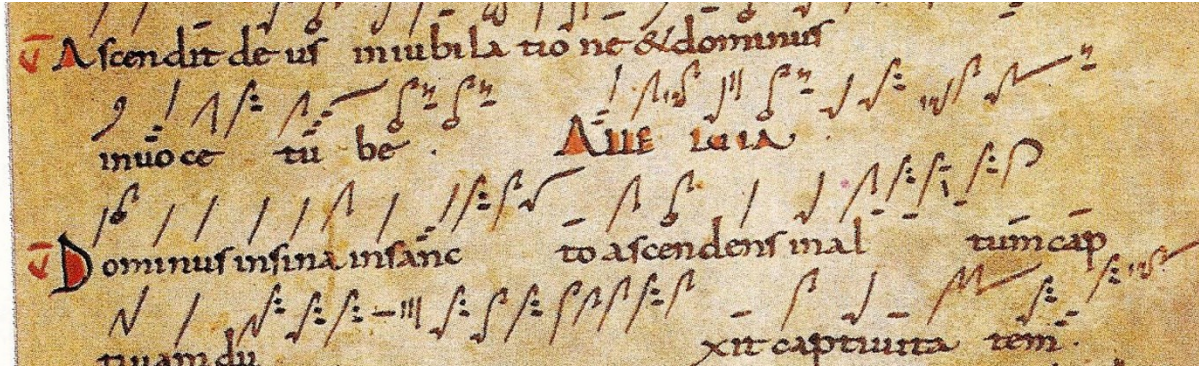 V̄ Ascendit deus iniubilatione & dominus
inuoce tubę. Alleluia.
V̄ Dominus insina insancto ascendens inaltum cap
tiuam duxit captiuitatem.